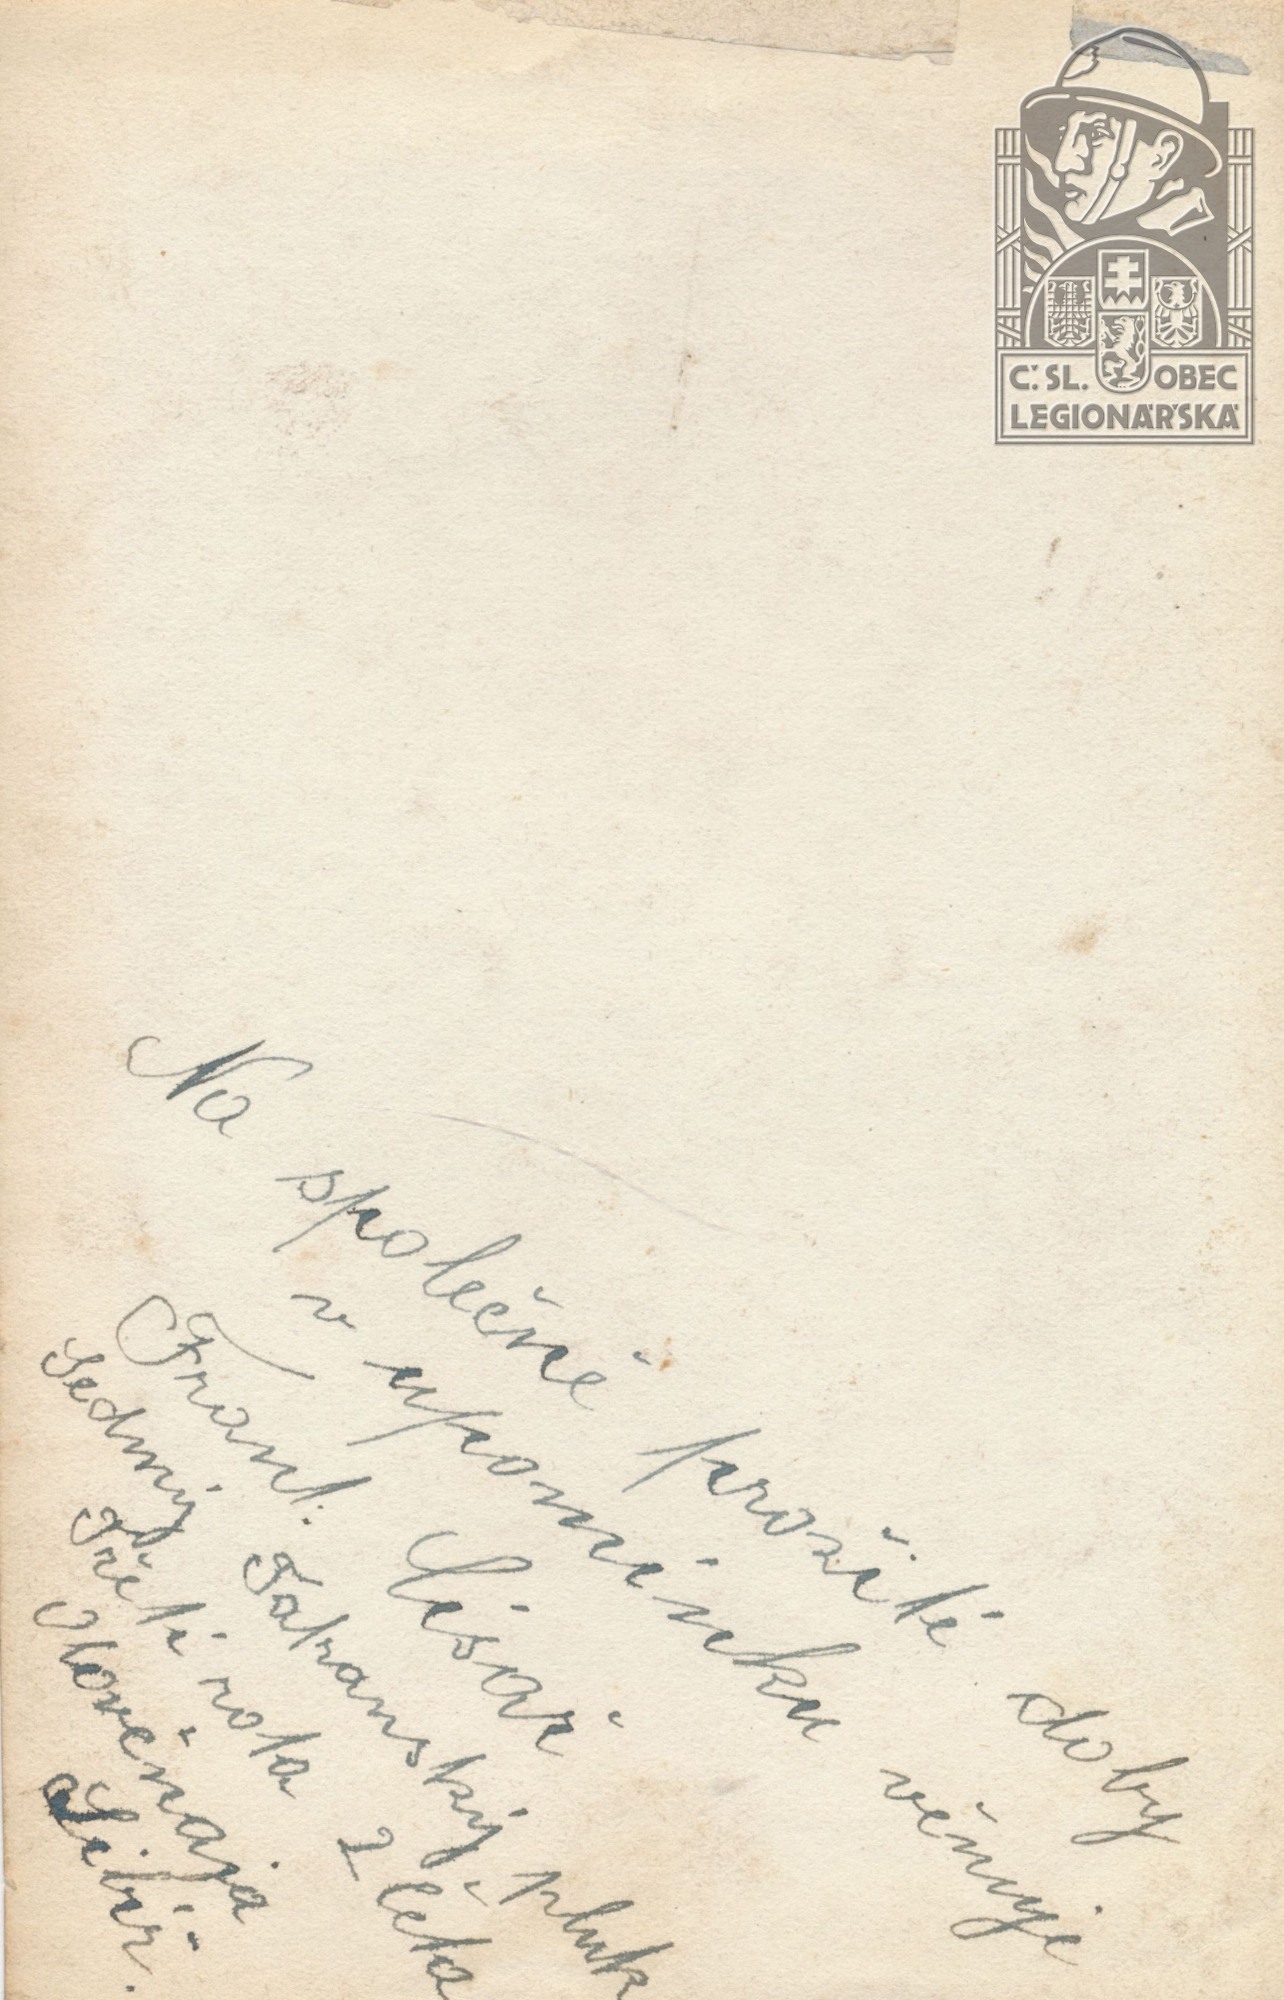 Č. SL. OBEC
LEGIONÁŘSKÁ
Na společně prožité doby
v upomínku věnuje
Frant. Lisař
Sedmý Tatranský pluk
Třetí rota 2 četa
Sibiř.